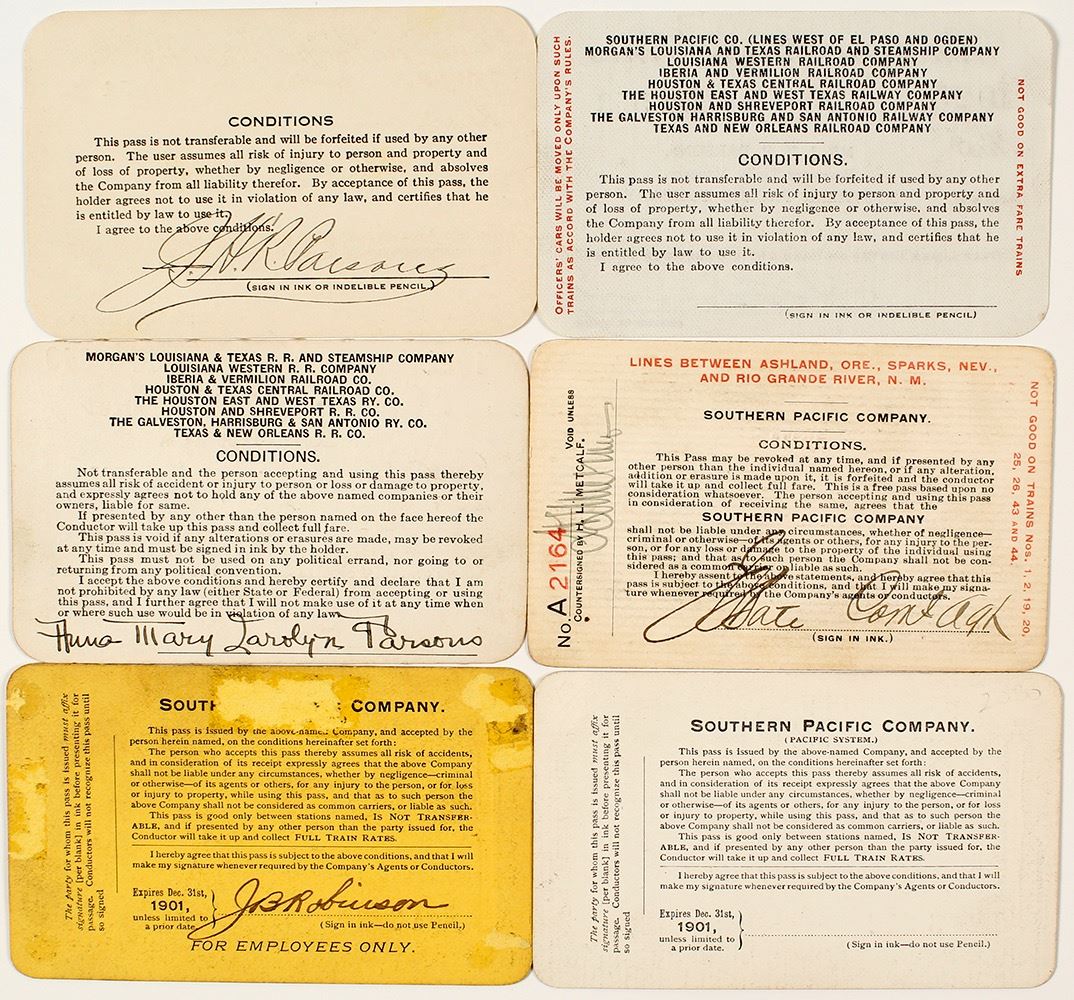 CONDITIONS
This pass is not transferable and will be forfeited if used by any other
person. The user assumes all risk of injury to person and property and
of loss of property, whether by negligence or otherwise, and absolves
the Company from all liability therefor. By acceptance of this pass, the
holder agrees not to use it in violation of any law, and certifies that he
is entitled by law to use it.
I agree to the above conditions.
J. H. K. Parsons
(SIGN IN INK OR INDELIBLE PENCIL)
OFFICERS' CARS WILL BE MOVED ONLY UPON SUCH
TRAINS AS ACCORD WITH THE COMPANY'S RULES.
SOUTHERN PACIFIC CO. (LINES WEST OF EL PASO AND OGDEN)
MORGAN'S LOUISIANA AND TEXAS RAILROAD AND STEAMSHIP COMPANY
LOUISIANA WESTERN RAILROAD COMPANY
IBERIA AND VERMILION RAILROAD COMPANY
HOUSTON & TEXAS CENTRAL RAILROAD COMPANY
THE HOUSTON EAST AND WEST TEXAS RAILWAY COMPANY
HOUSTON AND SHREVEPORT RAILROAD COMPANY
THE GALVESTON HARRISBURG AND SAN ANTONIO RAILWAY COMPANY
TEXAS AND NEW ORLEANS RAILROAD COMPANY
CONDITIONS.
This pass is not transferable and will be forfeited if used by any other
person. The user assumes all risk of injury to person and property and
of loss of property, whether by negligence or otherwise, and absolves
the Company from all liability therefor. By acceptance of this pass, the
holder agrees not to use it in violation of any law, and certifies that he
is entitled by law to use it.
I agree to the above conditions.
(SIGN IN INK OR INDELIBLE PENCIL)
NOT GOOD ON EXTRA FARE TRAINS
MORGAN'S LOUISIANA & TEXAS R. R. AND STEAMSHIP COMPANY
LOUISIANA WESTERN R. R. COMPANY
IBERIA & VERMILION RAILROAD CO.
HOUSTON & TEXAS CENTRAL RAILROAD CO.
THE HOUSTON EAST AND WEST TEXAS RY. CO.
HOUSTON AND SHREVEPORT R. R. CO.
THE GALVESTON, HARRISBURG & SAN ANTONIO RY. CO.
TEXAS & NEW ORLEANS R. R. CO.
CONDITIONS.
Not transferable and the person accepting and using this pass thereby
assumes all risk of accident or injury to person or loss or damage to property,
and expressly agrees not to hold any of the above named companies or their
owners, liable for same.
If presented by any other than the person named on the face hereof the
Conductor will take up this pass and collect full fare.
This pass is void if any alterations or erasures are made, may be revoked
at any time and must be signed in ink by the holder.
This pass must not be used on any political errand, nor going to or
returning from any political convention.
I accept the above conditions and hereby certify and declare that I am
not prohibited by any law (either State or Federal) from accepting or using
this pass, and I further agree that I will not make use of it at any time when
or where such use would be in violation of any law.
Anna Mary Carolyn Parsons
No. A 2164
VOID UNLESS
COUNTERSIGNED BY H. L. METCALF.
LINES BETWEEN ASHLAND, ORE., SPARKS, NEV.,
AND RIO GRANDE RIVER, N. M.
SOUTHERN PACIFIC COMPANY.
CONDITIONS.
This Pass may be revoked at any time, and if presented by any
other person than the individual named hereon, or if any alteration,
addition or erasure is made upon it, it is forfeited and the conductor
will take it up and collect full fare. This is a free pass based upon no
consideration whatsoever. The person accepting and using this pass
in consideration of receiving the same, agrees that the
SOUTHERN PACIFIC COMPANY
shall not be liable under any circumstances, whether of negligence—
criminal or otherwise—of its agents or others, for any injury to the per-
son, or for any loss or damage to the property of the individual using
this pass; and that as to such person the Company shall not be con-
sidered as a common carrier or liable as such.
I hereby assent to the above statements, and hereby agree that this
pass is subject to the above conditions, and that I will make my signa-
ture whenever required by the Company's agents or conductors.
(SIGN IN INK.)
NOT GOOD ON TRAINS Nos. 1, 2, 19, 20,
25, 26, 43 AND 44.
The party for whom this pass is issued must affix
signature [per blank] in ink before presenting it for
passage. Conductors will not recognize this pass until
so signed
SOUTH COMPANY.
This pass is issued by the above-named Company, and accepted by the
person herein named, on the conditions hereinafter set forth:
The person who accepts this pass thereby assumes all risk of accidents,
and in consideration of its receipt expressly agrees that the above Company
shall not be liable under any circumstances, whether by negligence—criminal
or otherwise—of its agents or others, for any injury to the person, or for loss
or injury to property, while using this pass, and that as to such person the
above Company shall not be considered as common carriers, or liable as such.
This pass is good only between stations named, IS NOT TRANSFER-
ABLE, and if presented by any other person than the party issued for, the
Conductor will take it up and collect FULL TRAIN RATES.
I hereby agree that this pass is subject to the above conditions, and that I will
make my signature whenever required by the Company's Agents or Conductors.
Expires Dec. 31st,
1901,
unless limited to
a prior date.
J B Robinson
(Sign in ink—do not use Pencil.)
FOR EMPLOYEES ONLY.
The party for whom this pass is issued must affix
signature [per blank] in ink before presenting it for
passage. Conductors will not recognize this pass until
so signed
SOUTHERN PACIFIC COMPANY.
(PACIFIC SYSTEM.)
This pass is issued by the above-named Company, and accepted by the
person herein named, on the conditions hereinafter set forth:
The person who accepts this pass thereby assumes all risk of accidents,
and in consideration of its receipt expressly agrees that the above Company
shall not be liable under any circumstances, whether by negligence—criminal
or otherwise—of its agents or others, for any injury to the person, or for loss
or injury to property, while using this pass, and that as to such person the
above Company shall not be considered as common carriers, or liable as such.
This pass is good only between stations named, IS NOT TRANSFER-
ABLE, and if presented by any other person than the party issued for, the
Conductor will take it up and collect FULL TRAIN RATES.
I hereby agree that this pass is subject to the above conditions, and that I will
make my signature whenever required by the Company's Agents or Conductors.
Expires Dec. 31st,
1901,
unless limited to
a prior date.
(Sign in ink—do not use Pencil.)